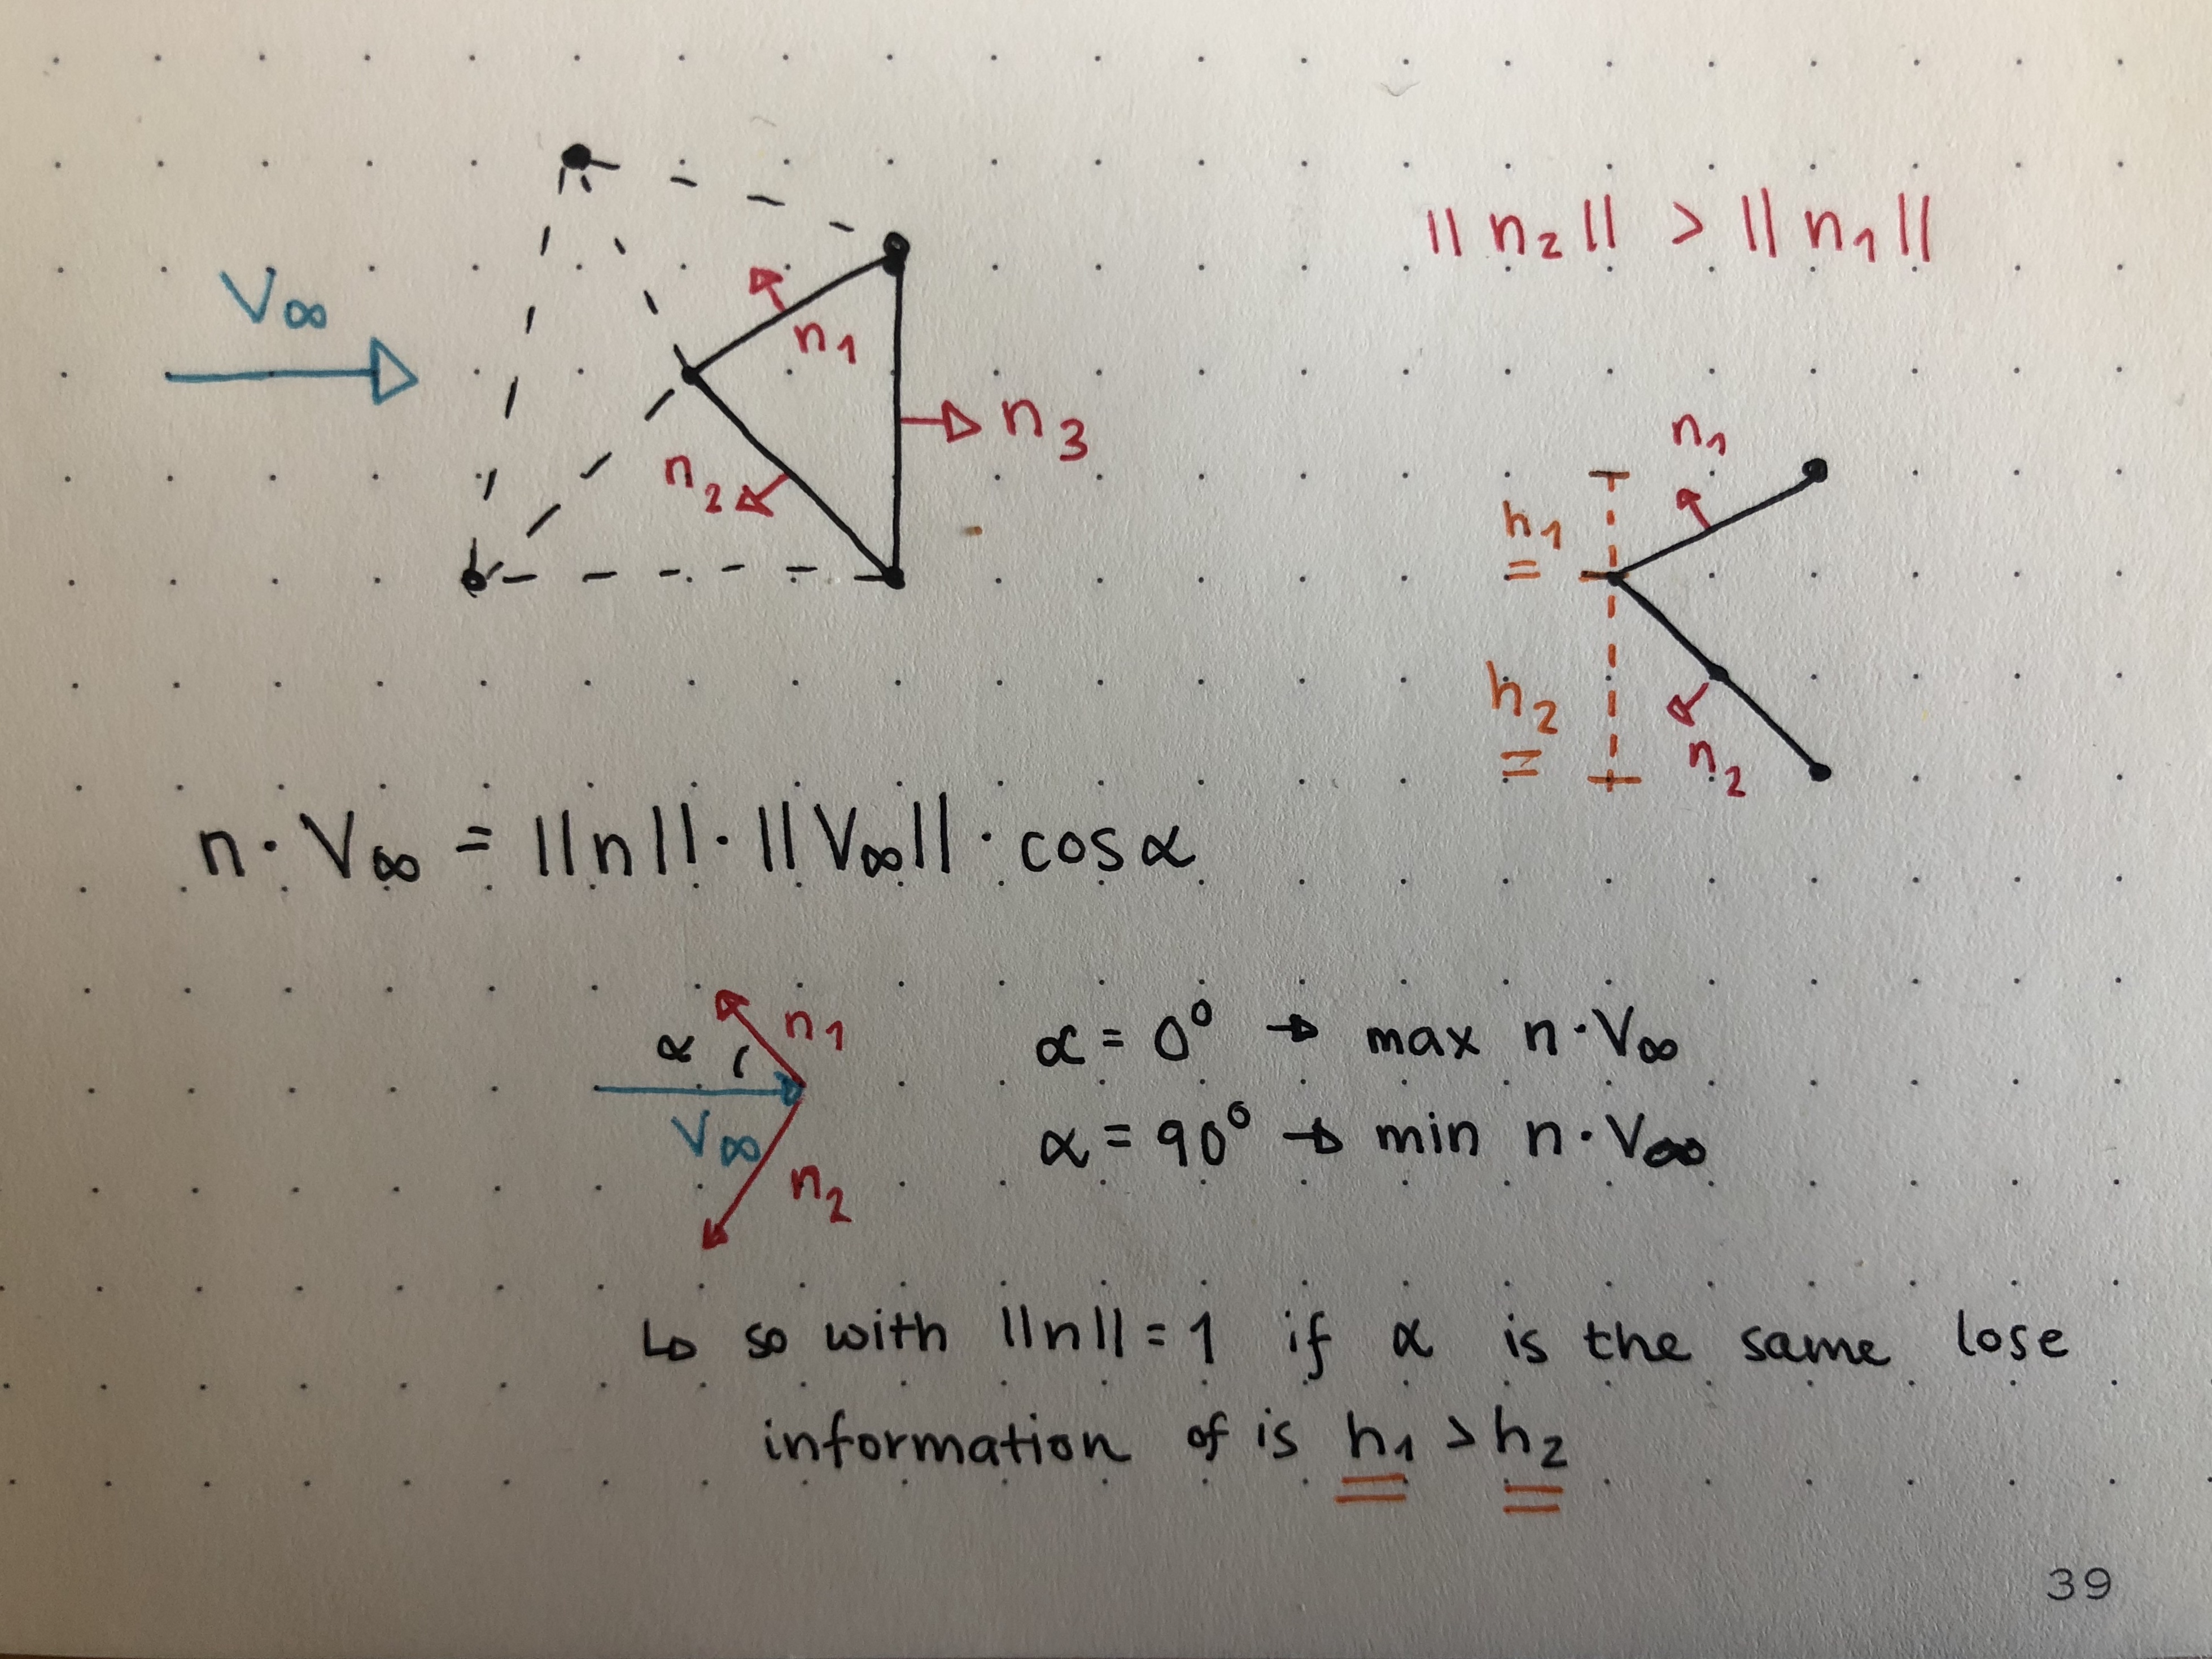 V∞
n1
n2
n3
|| n2 || > || n1 ||
n1
h1
h2
n2
n · V∞ = ||n|| · ||V∞|| · cos α
α
n1
V∞
n2
α = 0° → max n · V∞
α = 90° → min n · V∞
↳ so with ||n|| = 1 if α is the same lose
information of is h1 > h2
39